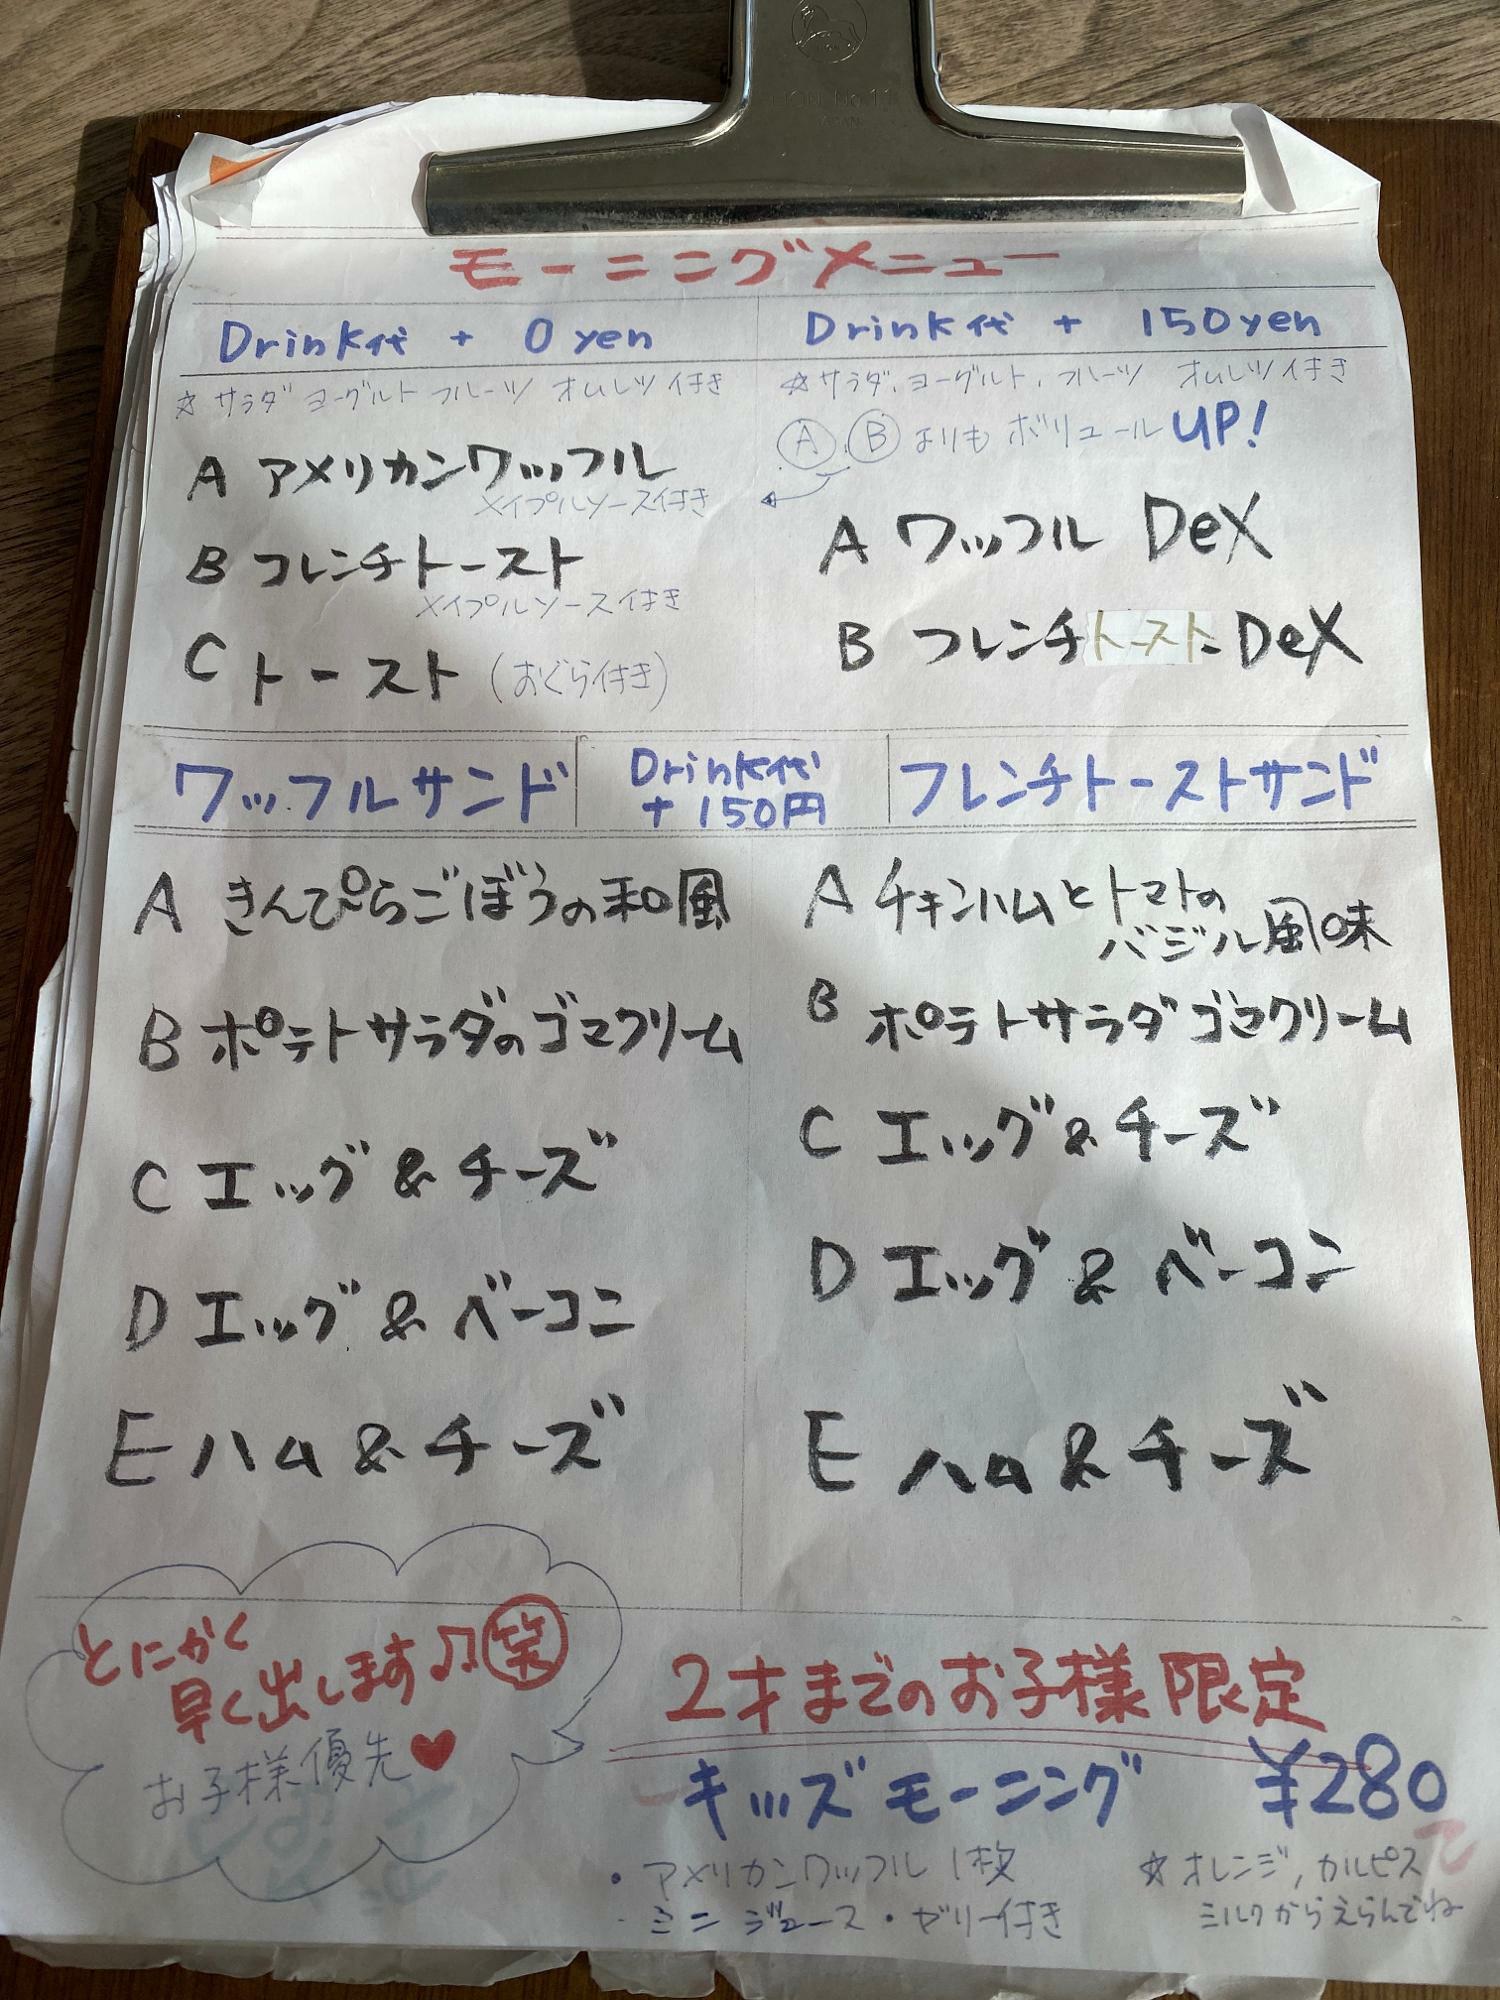 モーニングメニュー
Drink代 + 0 yen
☆サラダ ヨーグルト フルーツ オムレツ付き
A アメリカンワッフル
メイプルソース付き
B フレンチトースト
メイプルソース付き
C トースト (おぐら付き)
Drink代 + 150yen
☆サラダ、ヨーグルト、フルーツ オムレツ付き
Ⓐ Ⓑ よりも ボリュールUP!
A ワッフル DeX
B フレンチトースト DeX
ワッフルサンド
Drink代
+ 150円
フレンチトーストサンド
A きんぴらごぼうの和風
B ポテトサラダのゴマクリーム
C エッグ & チーズ
D エッグ & ベーコン
E ハム & チーズ
A チキンハムとトマトの
バジル風味
B ポテトサラダゴマクリーム
C エッグ & チーズ
D エッグ & ベーコン
E ハム & チーズ
とにかく
早く出します♫㊗笑
お子様優先♥
2才までのお子様限定
キッズモーニング ¥280
・アメリカンワッフル 1枚
・ミニ ジュース・ゼリー付き
☆オレンジ, カルピス
ミルクからえらんでね